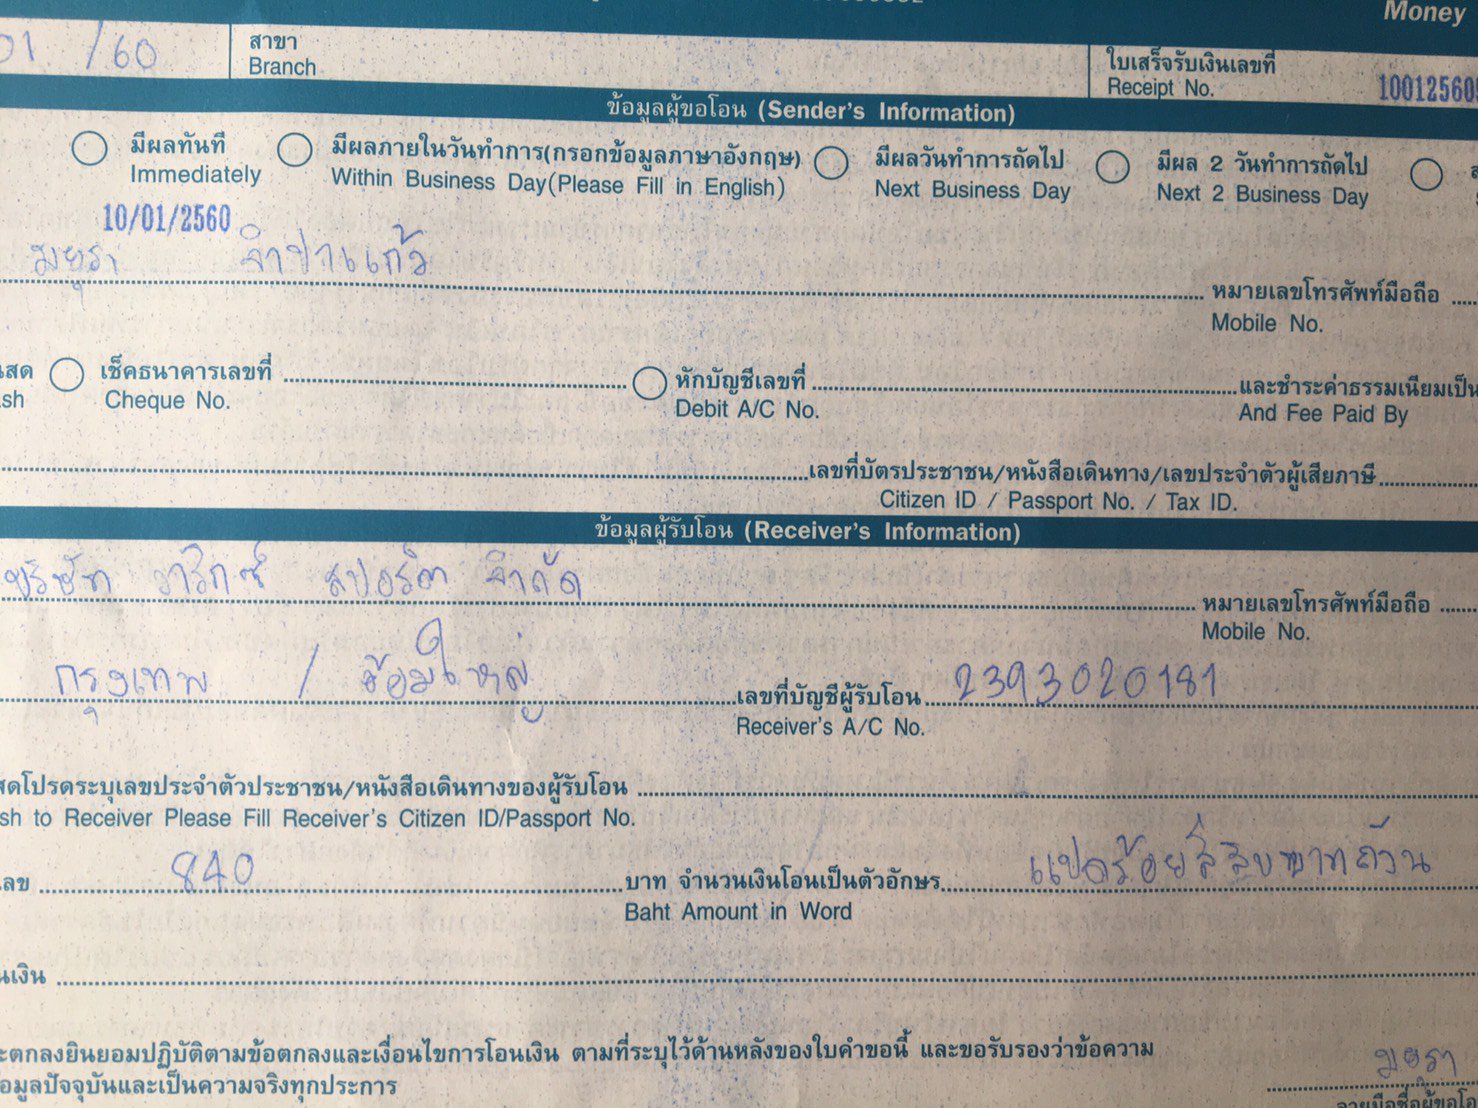 Money
01 /60
สาขา
Branch
ใบเสร็จรับเงินเลขที่
Receipt No.
100125609
ข้อมูลผู้ขอโอน (Sender's Information)
มีผลทันที
Immediately
มีผลภายในวันทำการ(กรอกข้อมูลภาษาอังกฤษ)
Within Business Day(Please Fill in English)
มีผลวันทำการถัดไป
Next Business Day
มีผล 2 วันทำการถัดไป
Next 2 Business Day
10/01/2560
มยุรา จำปาแก้ว
หมายเลขโทรศัพท์มือถือ
Mobile No.
นสด
sh
เช็คธนาคารเลขที่
Cheque No.
หักบัญชีเลขที่
Debit A/C No.
และชำระค่าธรรมเนียมเป็น
And Fee Paid By
เลขที่บัตรประชาชน/หนังสือเดินทาง/เลขประจำตัวผู้เสียภาษี
Citizen ID / Passport No. / Tax ID.
ข้อมูลผู้รับโอน (Receiver's Information)
บริษัท วาริกซ์ สปอร์ต จำกัด
หมายเลขโทรศัพท์มือถือ
Mobile No.
กรุงเทพ / อ้อมใหญ่
เลขที่บัญชีผู้รับโอน 2393020181
Receiver's A/C No.
สดโปรดระบุเลขประจำตัวประชาชน/หนังสือเดินทางของผู้รับโอน
sh to Receiver Please Fill Receiver's Citizen ID/Passport No.
เลข 840 บาท จำนวนเงินโอนเป็นตัวอักษร แปดร้อยสี่สิบบาทถ้วน
Baht Amount in Word
นเงิน
ะตกลงยินยอมปฏิบัติตามข้อตกลงและเงื่อนไขการโอนเงิน ตามที่ระบุไว้ด้านหลังของใบคำขอนี้ และขอรับรองว่าข้อความ
อมูลปัจจุบันและเป็นความจริงทุกประการ
มยุรา
ลายมือชื่อผู้ขอโอ